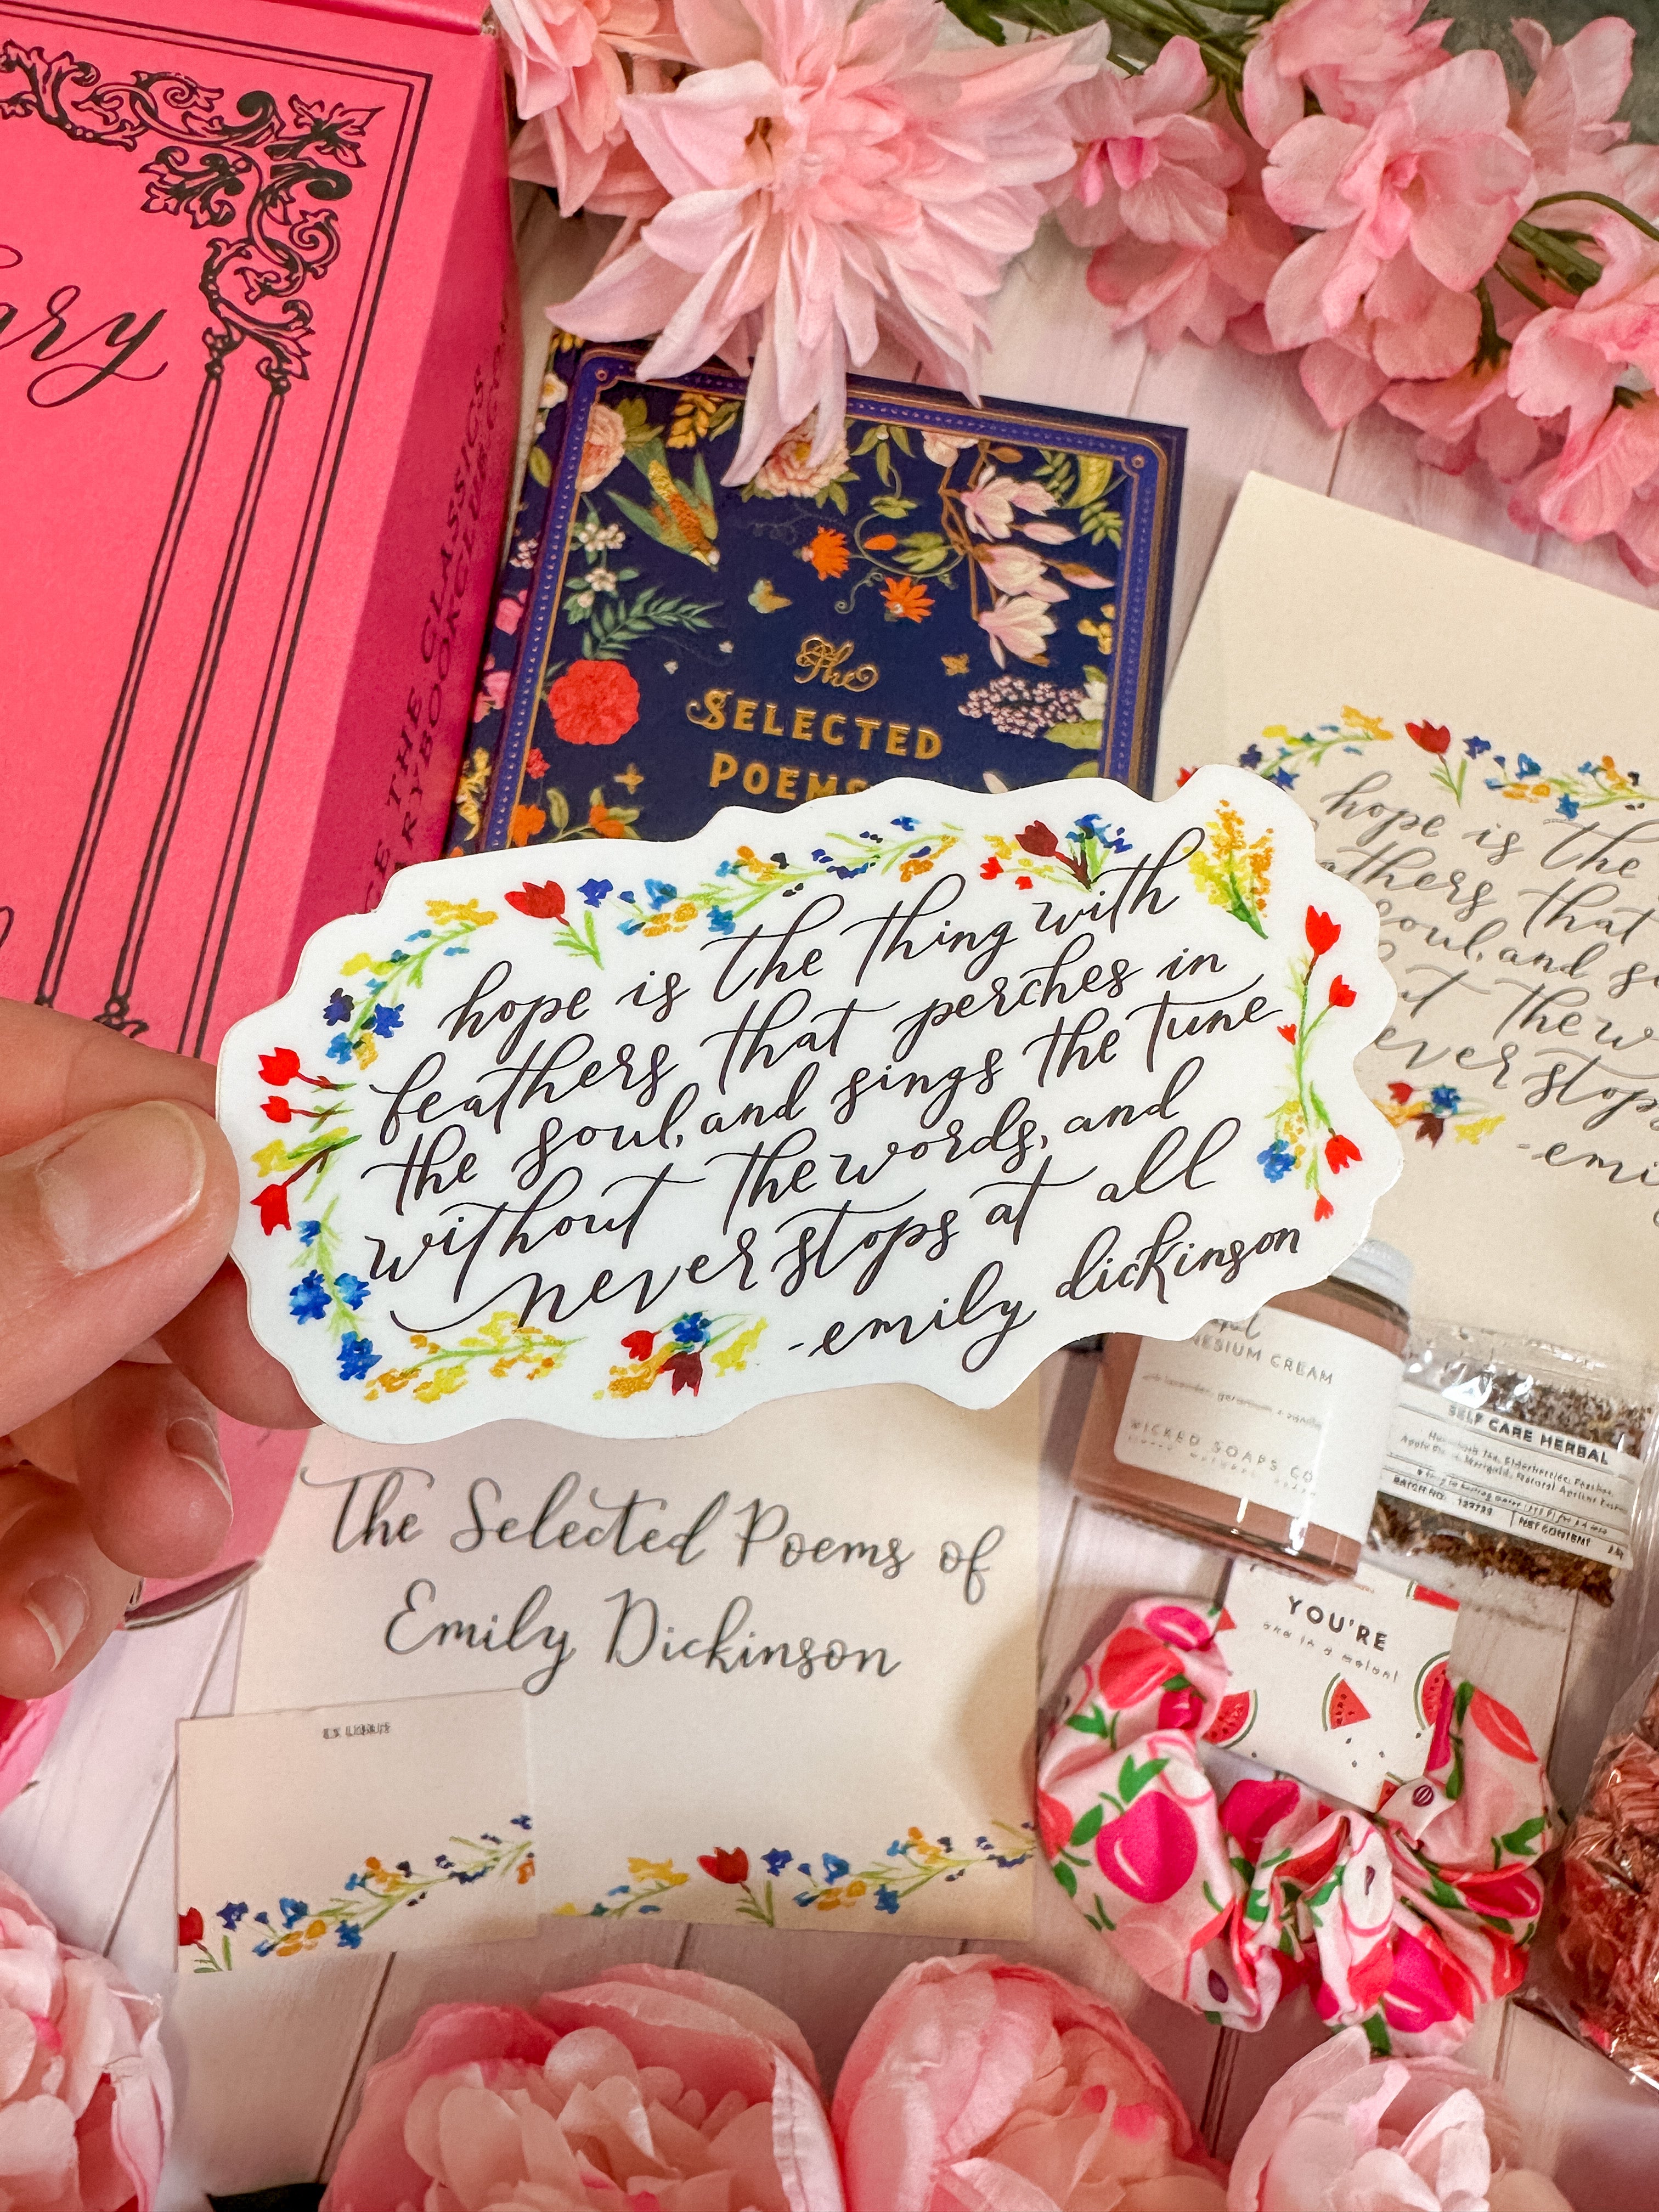 ary
THE CLASSICS
The
SELECTED
POEMS
hope is the
that
soul, and
the w
ever stops
-emi
hope is the thing with
feathers that perches in
the soul, and sings the tune
without the words, and
never stops at all
-emily dickinson
The Selected Poems of
Emily Dickinson
EX LIBRIS
NESIUM CREAM
WICKED SOAPS CO
SELF CARE HERBAL
BATCH NO.
NET CONTENT
YOU'RE
one in a melon!